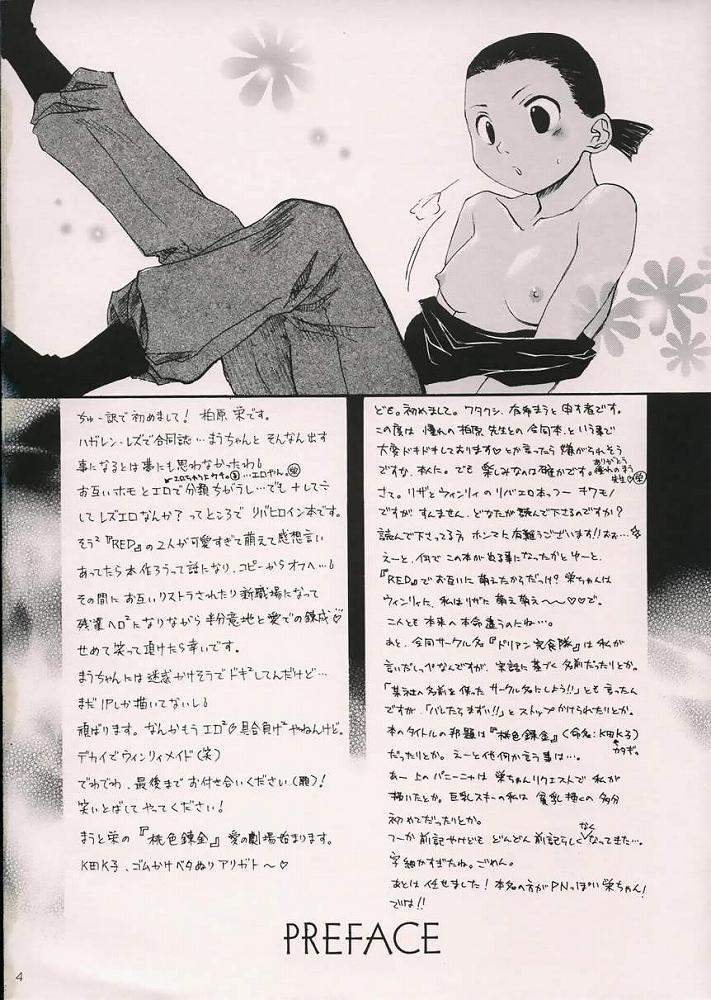 ちゅー訳で初めまして！ 柏原 栄です。
ハガレン・レズで合同誌…まうちゃんと そんなん出す
事になるとは夢にも思わなかったわ！
エロやん。
お互いホモとエロで分類ちがうし…でも
レズエロなんか？ってところで リバヒロイン本です。
そう²『RED』の2人が可愛すぎて萌えて感想言い
あってたら本作ろうって話になり、コピーからオフへ…！
その間にお互いリストラされたり新職場になって
残業ヘロ²になりながら半分意地と愛での錬成♡
せめて笑って頂けたら幸いです。
まうちゃんには迷惑かけそうでドキ²してんだけど…
まだ1Pしか描いてないし！
頑張ります。なんかもう エロ² 具合負け² やねんけど。
デカイでウィンリィメイド（笑）
でわでわ、最後までお付き合いください（願）！
笑いとばして やってください！
まうと栄の『桃色錬金』愛の劇場始まります。
K田K子、ゴムかけベタぬり アリガト〜♡
ども。初めまして。ワタクシ、 まうと申す者です。
この度は 憧れの柏原先生との合同本、という事で
大変ドキドキしております♡ とか言ったら 嫌がられそう
ですが、本人に。でも 楽しみなのは確かです。
ありがとう
憧れのまう
先生
さて。リザとウィンリィのリバエロ本、つー キワモノ
ですが、すんません、どなたが読んで下さるのですか？
読んで下さってる方 ホンマに有難うございます!! おお…
えーと、何で この本が出る事になったかとゆーと、
『RED』でお互いに 萌えたからだっけ？ 栄ちゃんは
ウィンリィに、私はリザに萌え萌え〜〜♡♡で。
二人とも 本来の 本命違うのにね…。
あと、合同サークル名『ドリアン完食隊』は 私が
言いだしっぺなんですが、実話に基づく名前だったりとか。
サークル名にしよう!!」とも 言ったん
ですが、「バレたらまずい!!」と ストップ かけられたりとか。
本のタイトルの邦題は『桃色錬金』（命名：K田K子）
カタギ。
だったりとか。えーと 他 何か言う事は…。
あー 上の パニーニャは 栄ちゃんリクエストで 私が
描いたとか。巨乳スキーの私は 貧乳 描くの 多分
初めてだったりとか。
つーか 前記やけども どんどん 前記らしくなくなってきた…。
字 細かすぎたね。ごめん。
あとは 任せました！ 本名の方が PNっぽい 栄ちゃん！
では!!
PREFACE
4